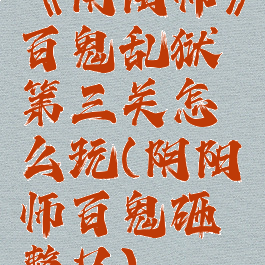 《阴阳师》
百鬼乱狱
第三关怎
么玩(阴阳
师百鬼砸